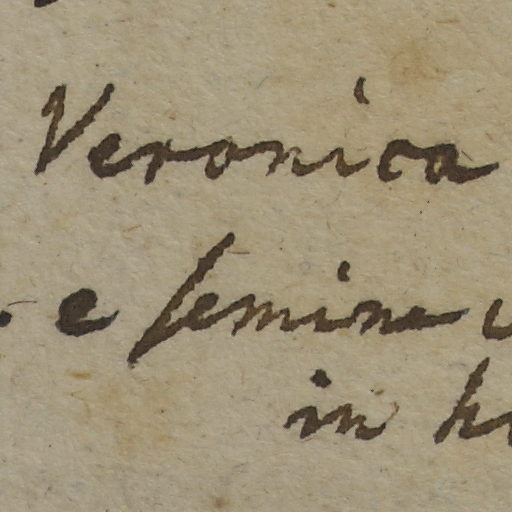 Veronica
e semine
in